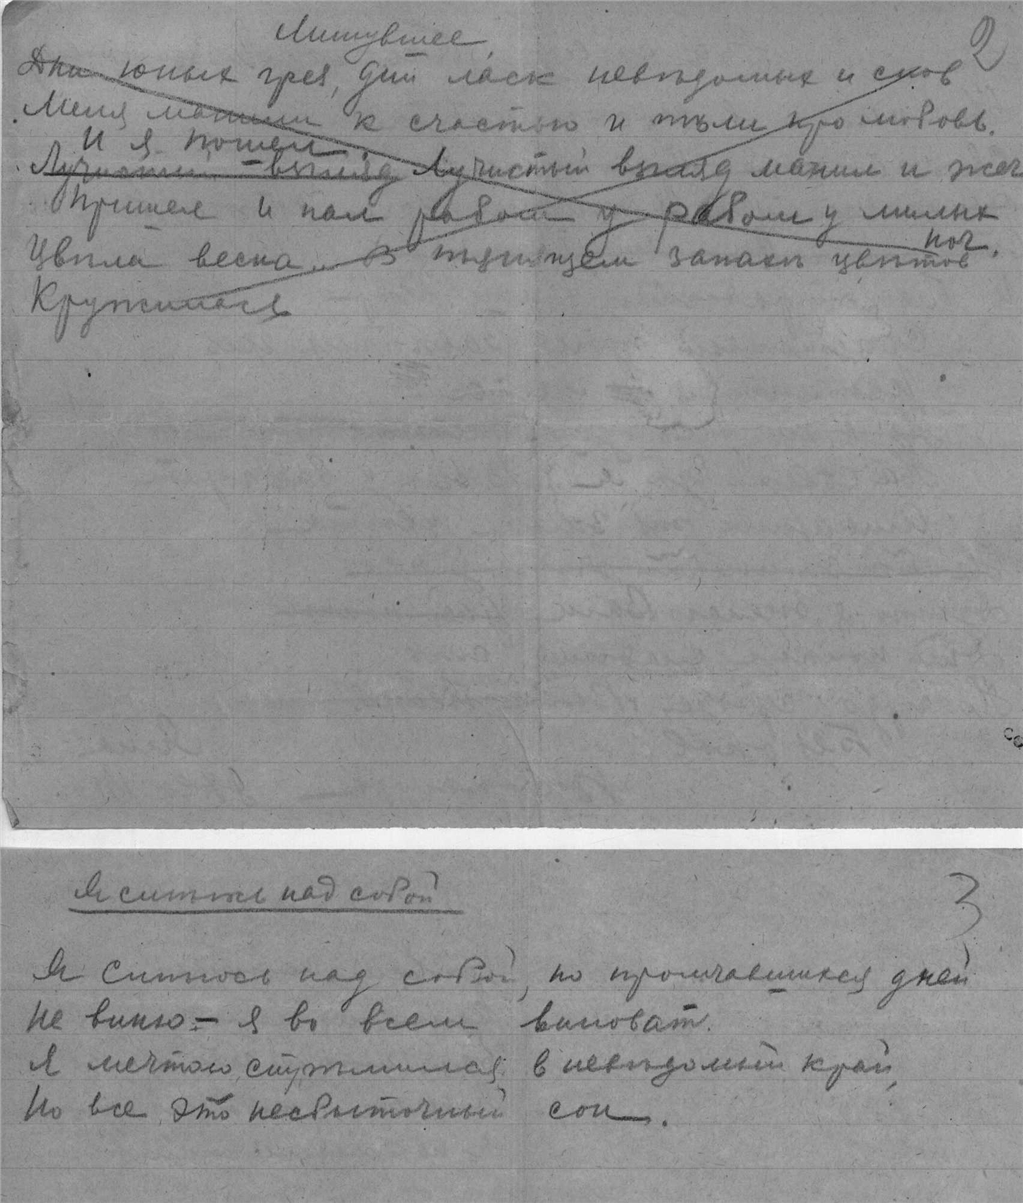 Минувшее.
2
Дни юных грез, дни ласк невѣдомых и снов
Меня манили к счастью и пѣли про любовь.
И я пошел.
Лучистый взгляд Лучистый взгляд манил и жег
Пришел и пал рабом у рабом у милых
ног.
Цвѣла весна.. В пьянящем запахѣ цвѣтов
Кружилася
Я смѣюсь над собой
3
Я смѣюсь над собой, но промчавшихся дней
Не виню – я во всем виноват.
Я мечтою стремился в невѣдомый край,
Но все это несбыточный сон.